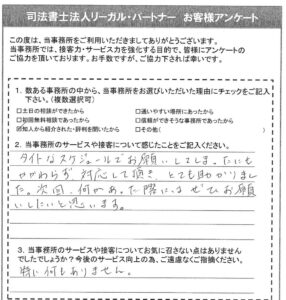 司法書士法人リーガル・パートナー お客様アンケート
この度は、当事務所をご利用いただきましてありがとうございます。
当事務所では、接客力・サービス力を強化する目的で、皆様にアンケートの
ご協力を頂いております。お手数ですが、ご協力下されば幸いです。
1．数ある事務所の中から、当事務所をお選びいただいた理由にチェックをご記入
下さい。(複数選択可)
□土日の相談ができたから □通いやすい場所にあったから
□初回無料相談であったから □信頼ができそうな事務所であったから
☑知人から紹介された・評判を聞いたから □その他( )
2．当事務所のサービスや接客について感じたことをご記入ください。
タイトなスケジュールでお願いしてしまったにも
かかわらず、対応して頂き、とても助かりまし
た。次回、何かあった際にはぜひお願
いしたいと思います。
3．当事務所のサービスや接客についてお気に召さない点はありません
でしたでしょうか？今後のサービス向上の為、ご遠慮なくご指摘ください。
特に何もありません。